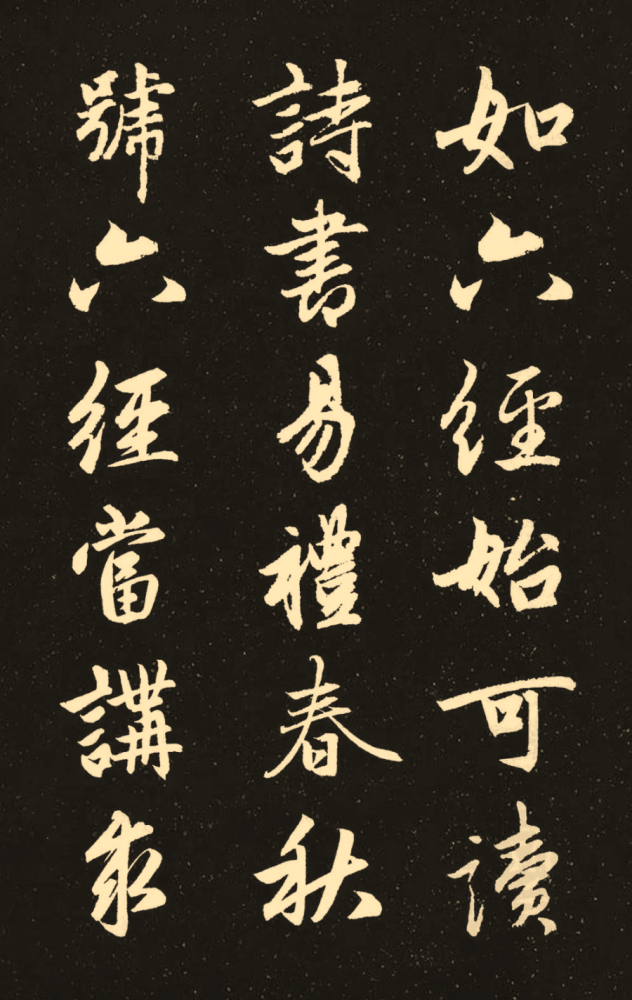 如六經始可讀
詩書易禮春秋
號六經當講求